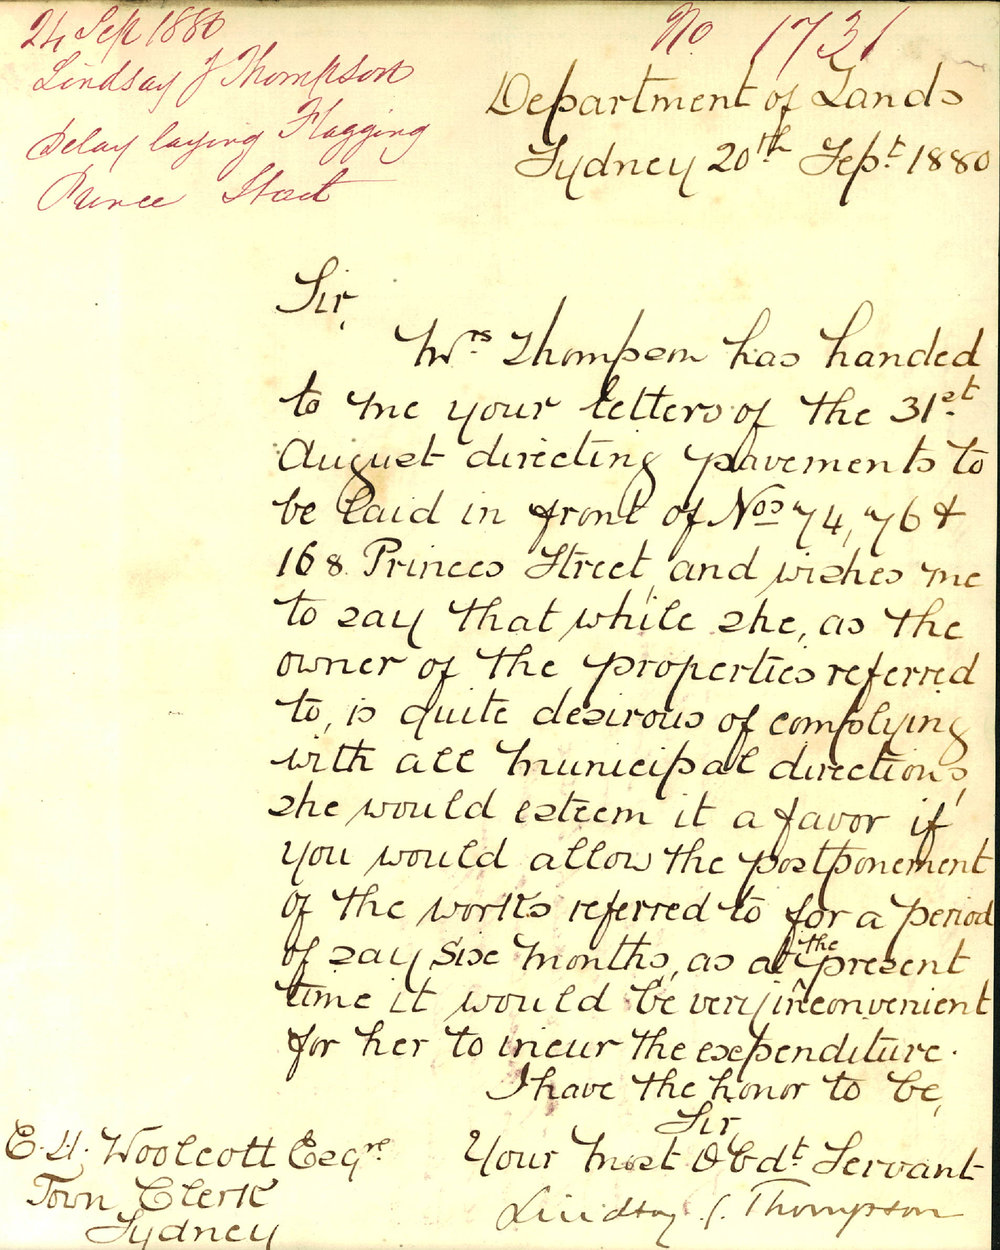 24 Sep 1880
Lindsay J Thompson
Delay laying Flagging
Prince Street
No 1731
Department of Lands
Sydney 20th Sept 1880
Sir,
Mrs Thompson has handed
to me your letters of the 31st
August directing pavements to
be laid in front of Nos 74, 76 &
168 Princes Street, and wishes me
to say that while she, as the
owner of the properties referred
to, is quite desirous of complying
with all Municipal directions,
she would esteem it a favor if
you would allow the postponement
of the works referred to for a period
of say Six Months, as at the present
time it would be very inconvenient
for her to incur the expenditure.
I have the honor to be,
Sir,
Your Most Obdt Servant
Lindsay J. Thompson
E. H. Woolcott Esqre
Town Clerk
Sydney